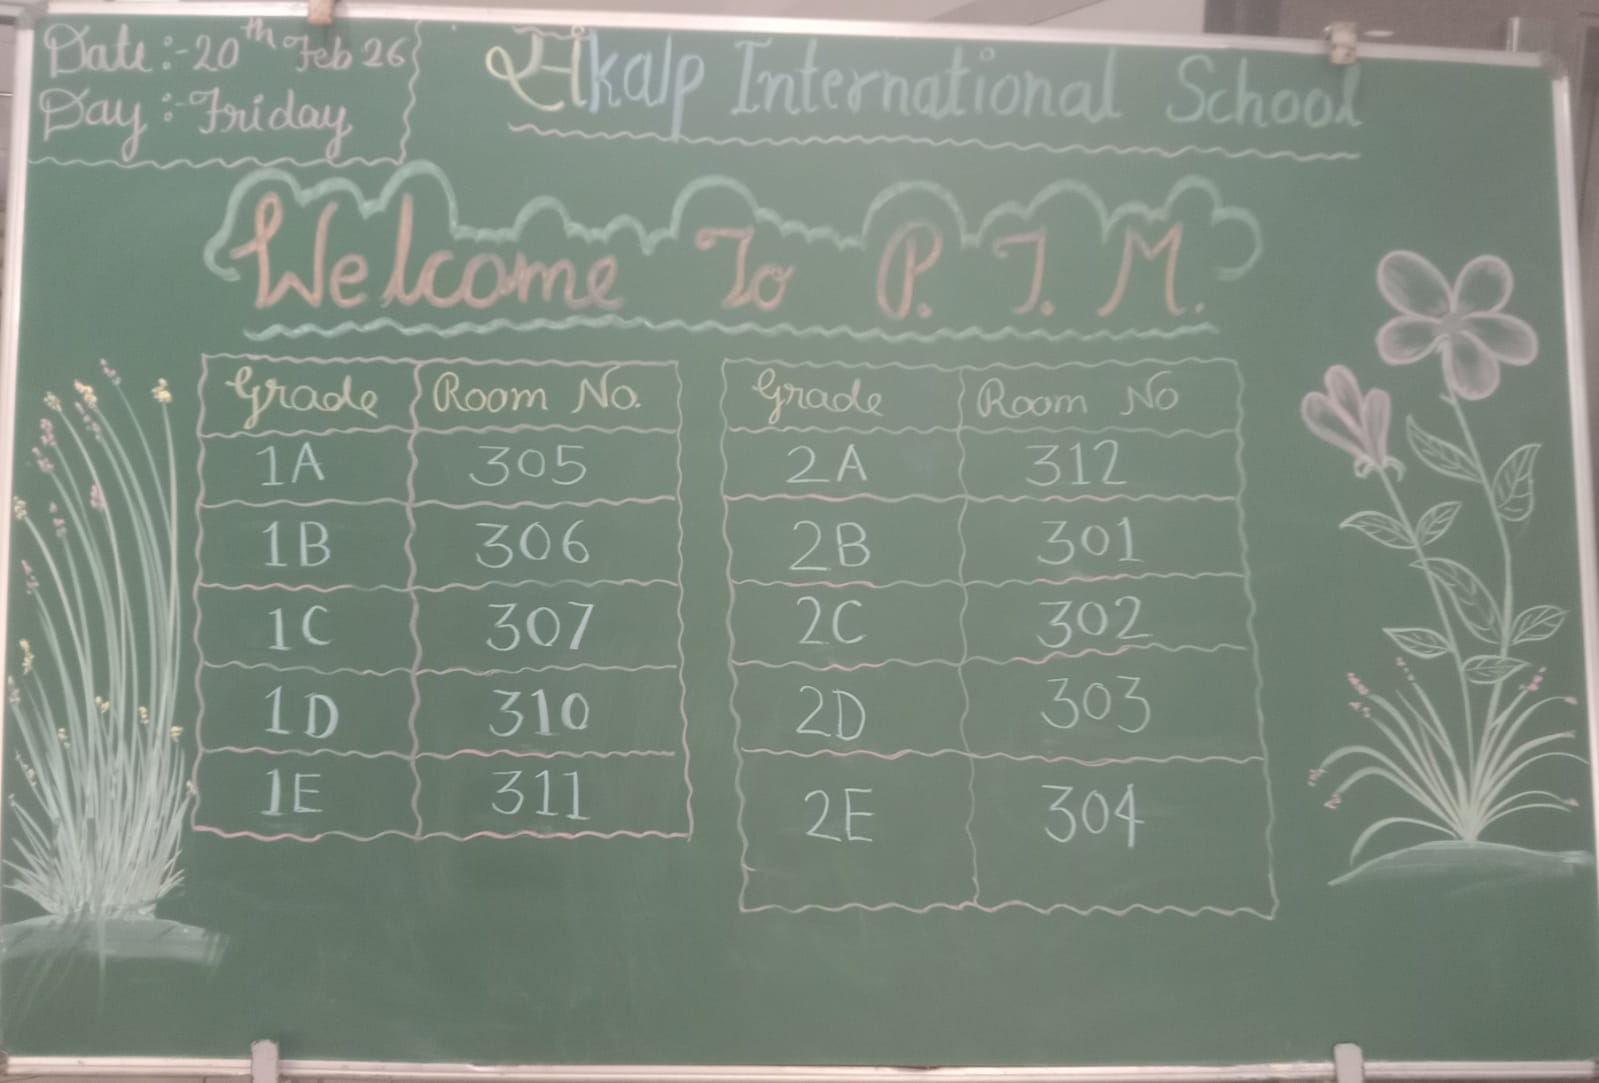 Date :- 20th Feb 26
Day :- Friday
संkalp International School
Welcome To P. T. M.
Grade Room No. Grade Room No
1A 305 2A 312
1B 306 2B 301
1C 307 2C 302
1D 310 2D 303
1E 311 2E 304